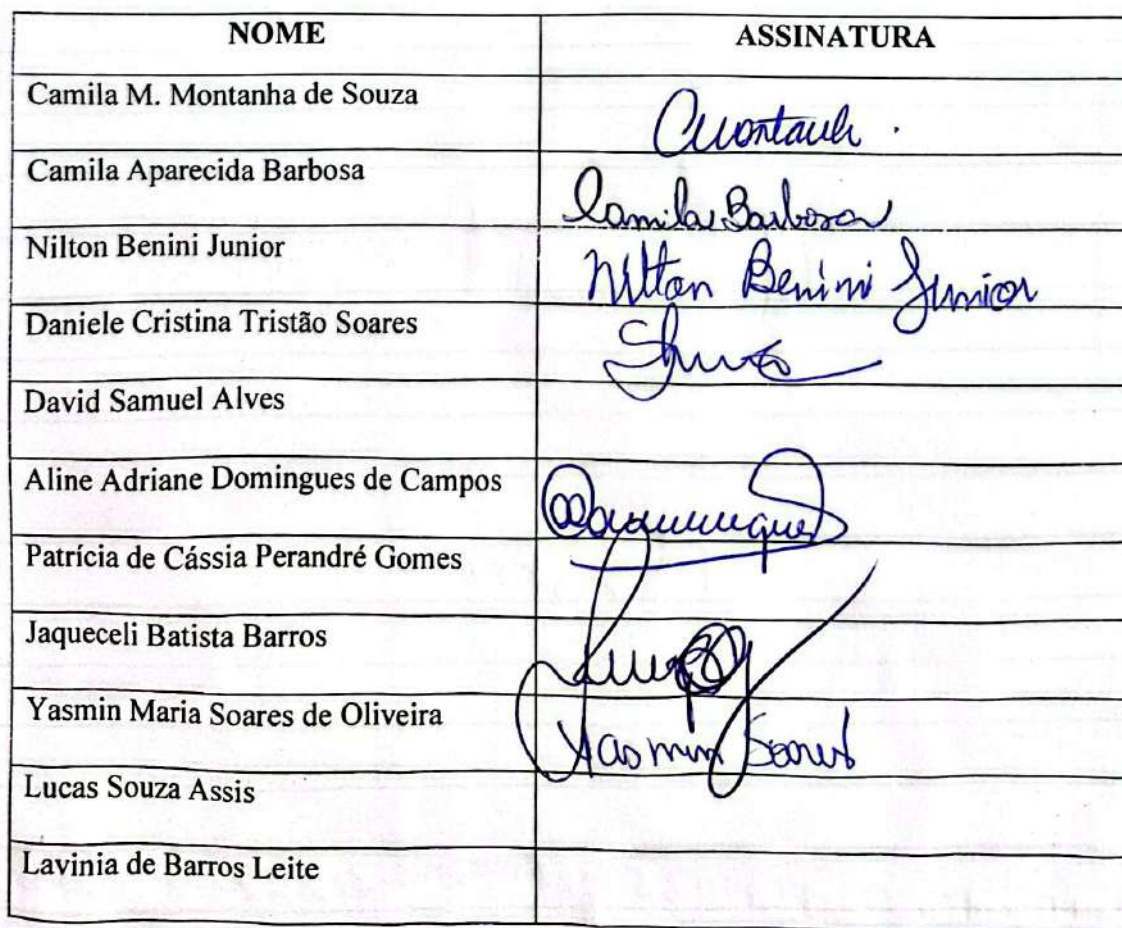 NOME ASSINATURA
Camila M. Montanha de Souza
Camila Aparecida Barbosa Camila Barbosa
Nilton Benini Junior Nilton Benini Junior
Daniele Cristina Tristão Soares
David Samuel Alves
Aline Adriane Domingues de Campos
Patrícia de Cássia Perandré Gomes
Jaqueceli Batista Barros
Yasmin Maria Soares de Oliveira Yasmin Soares
Lucas Souza Assis
Lavinia de Barros Leite